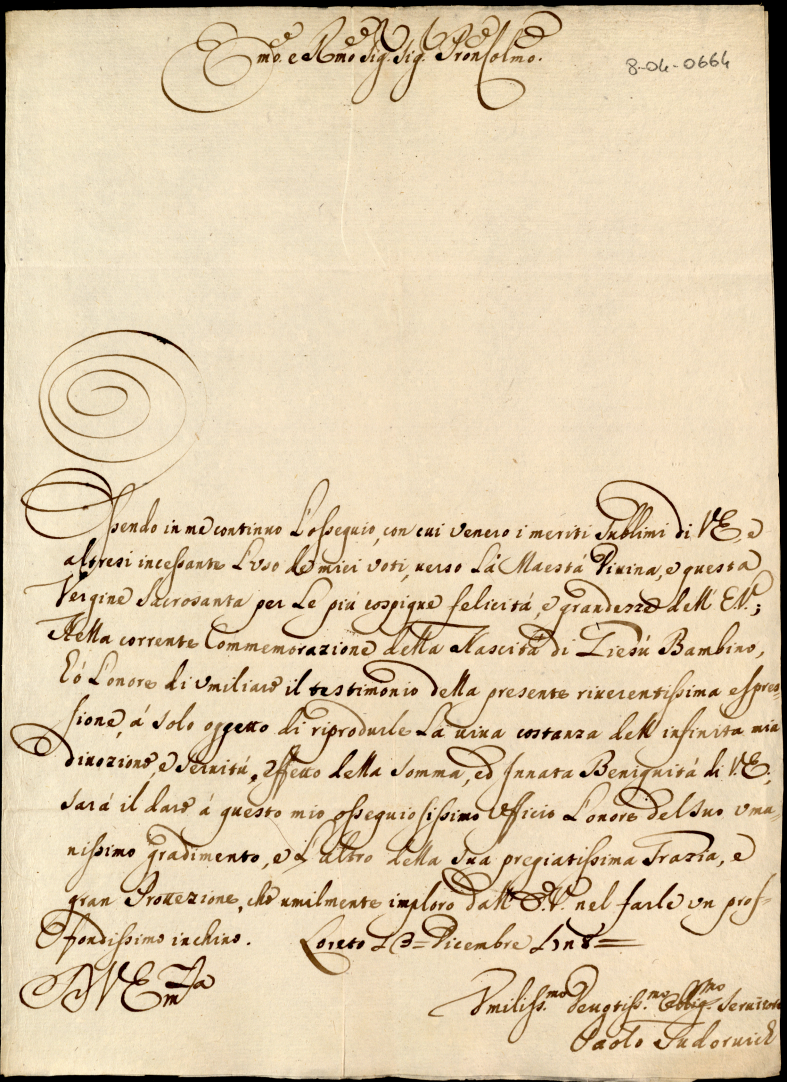 Emo. e Rmo Sig. Sig. Pron Colmo.
8-04-0664
Essendo in me continuo l'ossequio, con cui venero i meriti sublimi di V.E., e
altresi incessante l'uso de miei voti, verso la Maestá Divina, e questa
Vergine Sacrosanta per le piú cospigue felicitá, e grandezze dell' E.V.;
Nella corrente Commemorazione della Nascitá di Giesú Bambino,
hó l'onore di umiliare il testimonio della presente riverentissima espres-
sione, á solo oggetto di riprodurle la viva costanza dell' infinita mia
divozione, e servitú, effetto della somma, ed Innata Benignitá di V.E.,
sará il dare á questo mio ossequiosissimo officio l'onore del suo uma-
nissimo gradimento, e l'altro della sua pregiatissima Grazia, e
gran Protezione, che umilmente imploro dall' E.V. nel farle un prof-
fondissimo inchino. Loreto Dicembre
D V Em za
Umiliss.mo Deuotiss.mo Obblig.mo Seruitore
Paolo